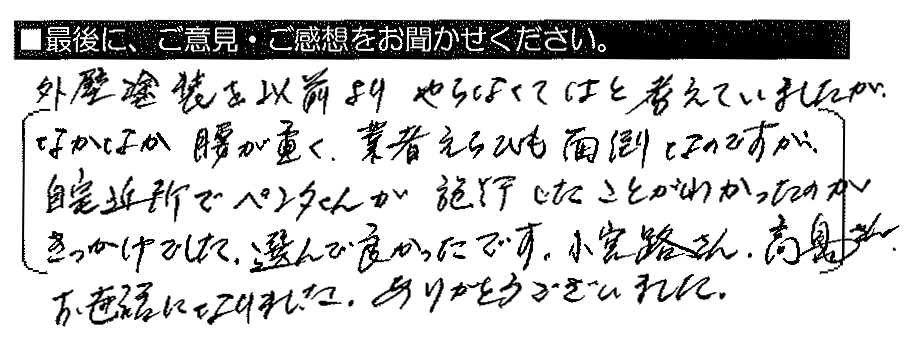 ■最後に、ご意見・ご感想をお聞かせください。
外壁塗装を以前より やらなくてはと考えていましたが、
なかなか 腰が重く、業者えらびも面倒なのですが、
自宅近所でペンタくんが 施行したことがわかったのが
きっかけでした。選んで良かったです。小宮路さん、高島さん、
お世話になりました。ありがとうございました。